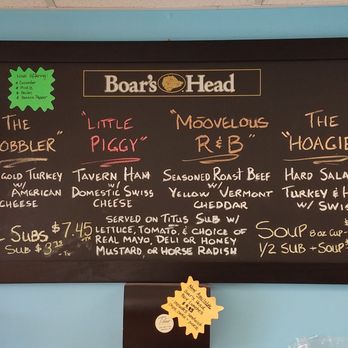 Now Offering
Cucumber
Pickle
Onion
Banana Pepper
Boar's Head
THE
OBBLER"
"LITTLE
PIGGY"
"MOOVELOUS
R & B"
THE
"HOAGIE
GOLD TURKEY
w/
AMERICAN
CHEESE
TAVERN HAM
w/
DOMESTIC SWISS
CHEESE
SEASONED ROAST BEEF
w/
YELLOW VERMONT
CHEDDAR
HARD SALA
TURKEY & H
w/ SWIS
SUBS $7.45
SUB $3.
SERVED ON TITUS SUB w/
LETTUCE, TOMATO, & CHOICE OF
REAL MAYO, DELI OR HONEY
MUSTARD, OR HORSE RADISH
SOUP 8 OZ CUP-
1/2 SUB + SOUP